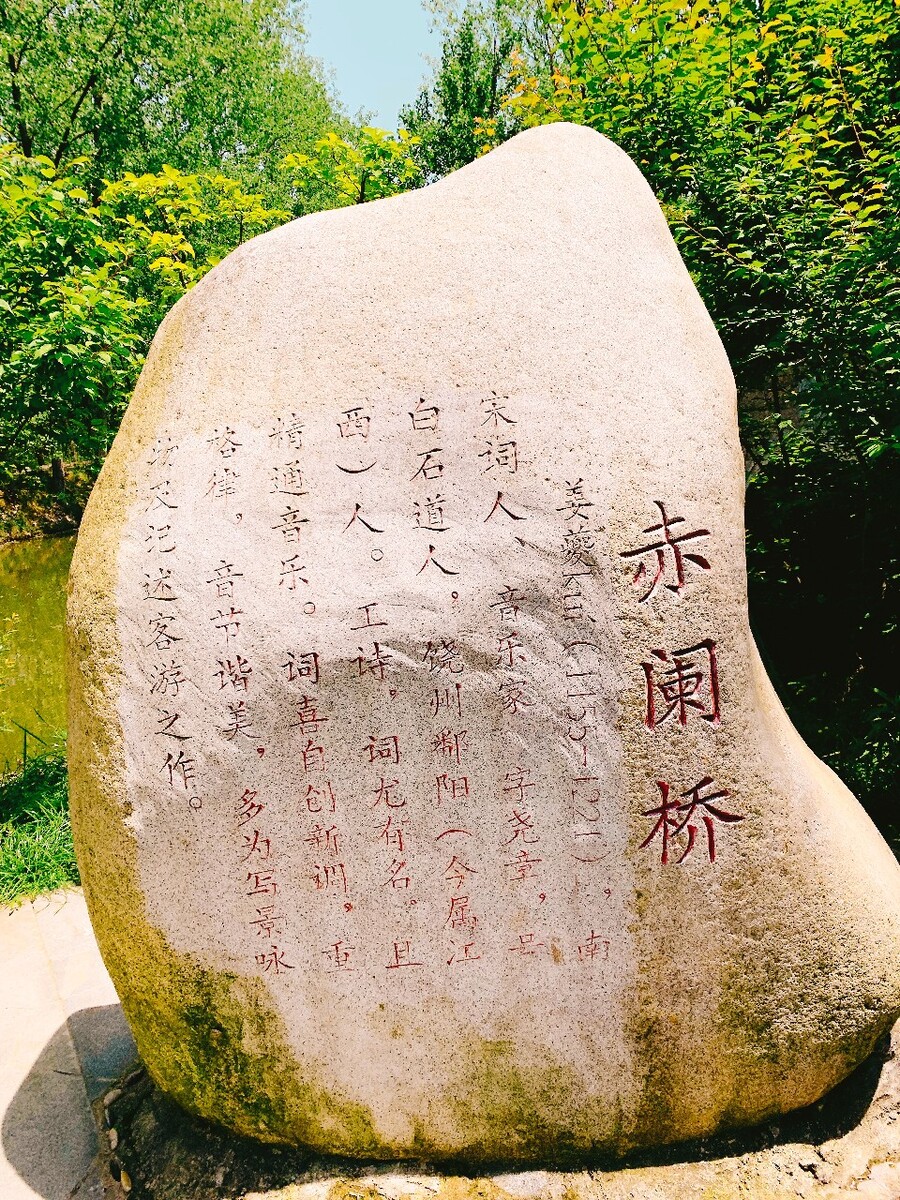 赤阑桥
姜夔kuí（1155-1221），南
宋词人、音乐家 字尧章，号
白石道人，饶州鄱阳（今属江
西）人。工诗，词尤有名。且
精通音乐。词喜自创新调，重
格律，音节谐美，多为写景咏
物及记述客游之作。